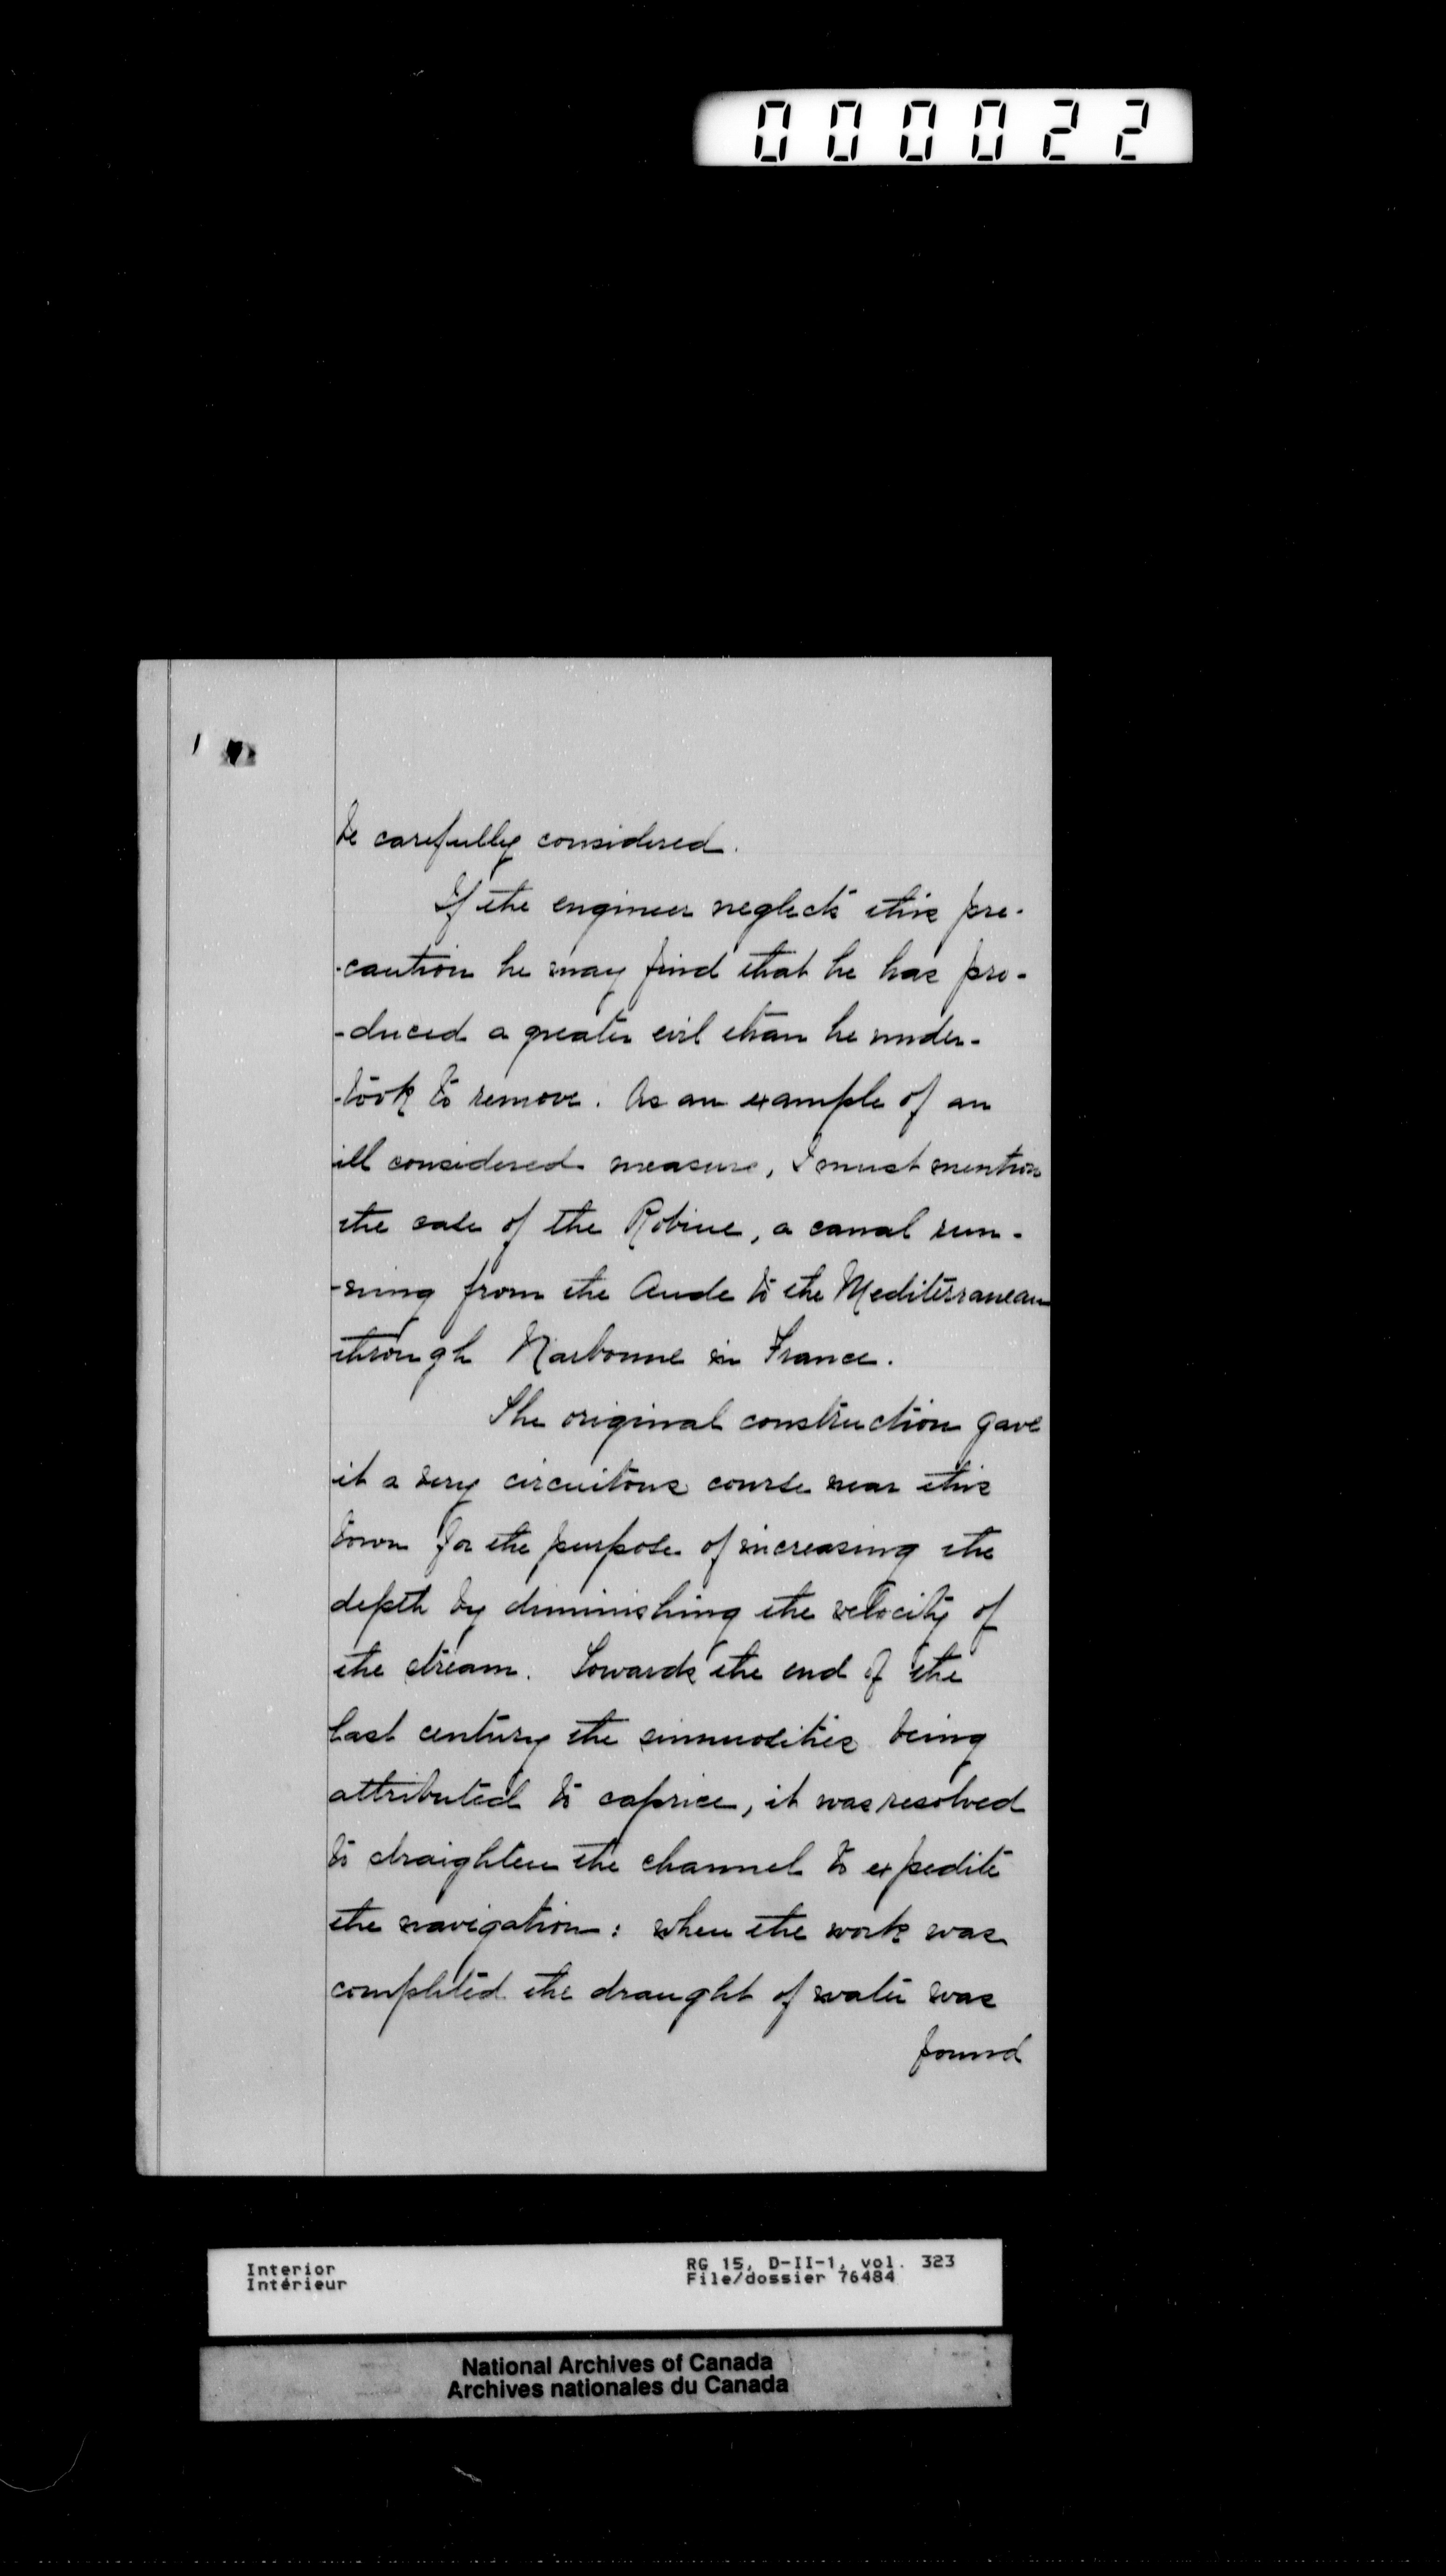 000022
be carefully considered.
If the engineer neglects this pre-
-caution he may find that he has pro-
-duced a greater evil than he under-
-took to remove. As an example of an
ill considered measure, I must mention
the case of the Robine, a canal run-
-ning from the Aude to the Mediterranean
through Narbonne in France.
The original construction gave
it a very circuitous course near this
town for the purpose of increasing the
depth by diminishing the velocity of
the stream. Towards the end of the
last century the sinuosities being
attributed to caprice, it was resolved
to straighten the channel to expedite
the navigation: when the work was
completed the draught of water was
found
Interior
Intérieur
RG 15, D-II-1, vol. 323
File/dossier 76484
National Archives of Canada
Archives nationales du Canada